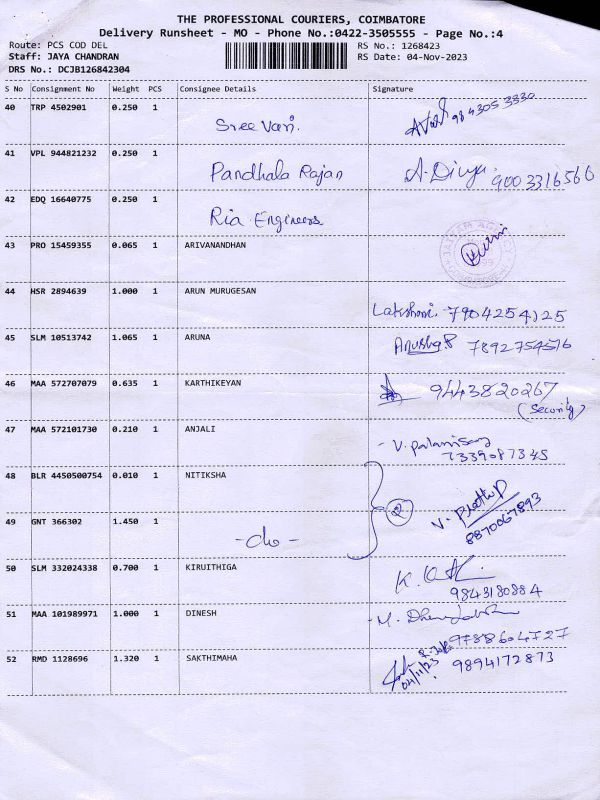 THE PROFESSIONAL COURIERS, COIMBATORE
Delivery Runsheet - MO - Phone No.:0422-3505555 - Page No.:4
Route: PCS COD DEL RS No.: 1268423
Staff: JAYA CHANDRAN RS Date: 04-Nov-2023
DRS No.: DCJB126842304
S No Consignment No Weight PCS Consignee Details Signature
40 TRP 4502901 0.250 1 Sree Vari. 9843053330
41 VPL 944821232 0.250 1 Pandhala Rajan A. Divya 9003316566
42 EDQ 16640775 0.250 1 Ria Engineers
43 PRO 15459355 0.065 1 ARIVANANDHAN
44 HSR 2894639 1.000 1 ARUN MURUGESAN Lakshmi. 7904254125
45 SLM 10513742 1.065 1 ARUNA 7892754516
46 MAA 572707079 0.635 1 KARTHIKEYAN 9443820267
(Security)
47 MAA 572101730 0.210 1 ANJALI - V. palanisamy
7339087345
48 BLR 4450500754 0.010 1 NITIKSHA
49 GNT 366302 1.450 1 - do - 8870067893
50 SLM 332024338 0.700 1 KIRUITHIGA
9843180884
51 MAA 101989971 1.000 1 DINESH
9788604727
52 RMD 1128696 1.320 1 SAKTHIMAHA 04/11/23 9894172873